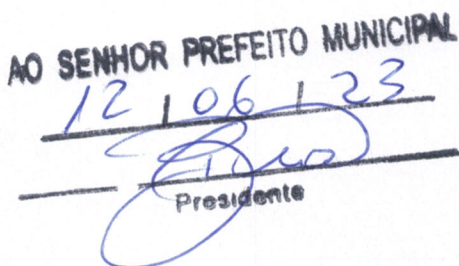 AO SENHOR PREFEITO MUNICIPAL
12 / 06 / 23
Presidente